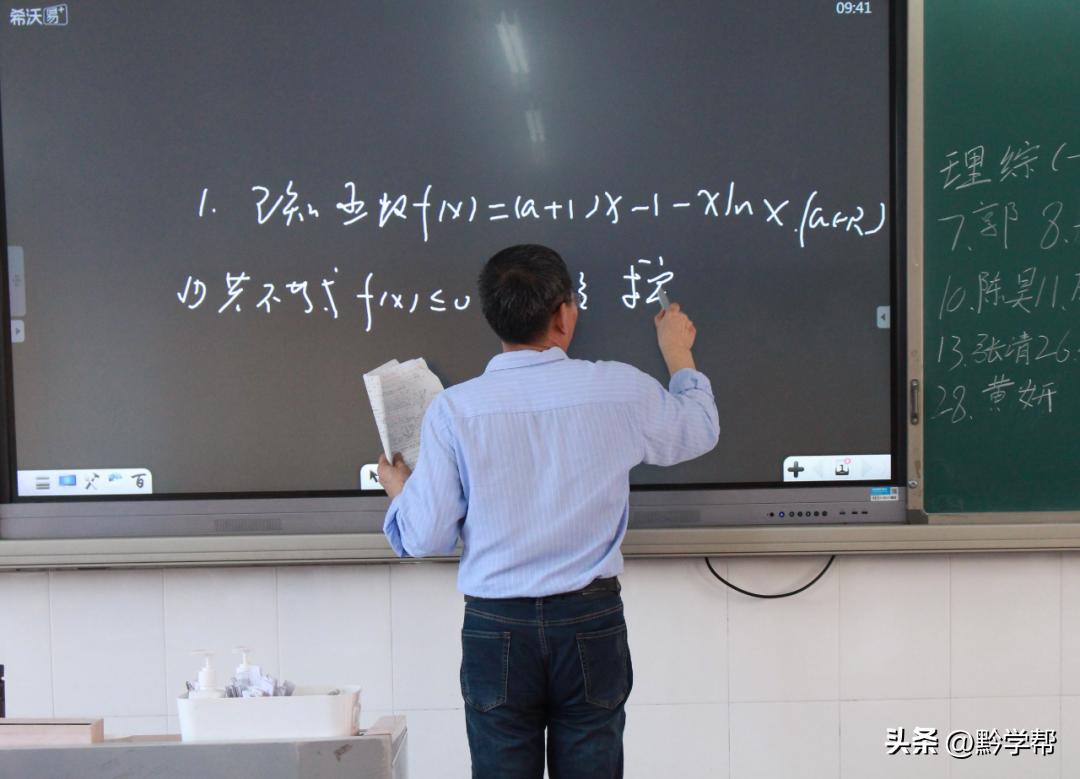 希沃易+
09:41
1. 已知函数f(x)=(a+1)x-1-xlnx.(a∈R)
(1)若不等式 f(x)≤0
理综(一
7.郭 8.
10.陈昊11.
13.张靖26.
28.黄妍
头条 @黔学帮